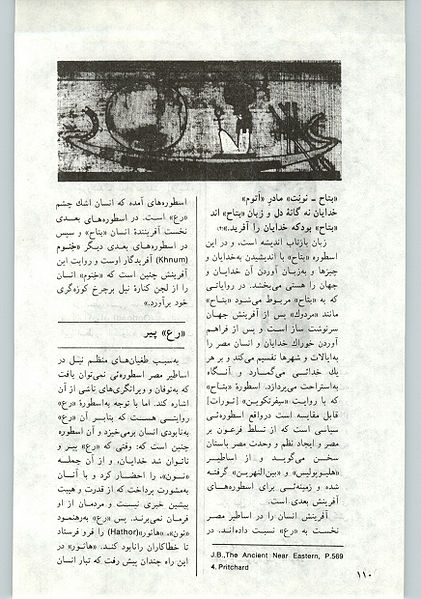 «پتاح ـ نونت» مادر «آتوم»
خدایان نه گانهٔ دل و زبان «پتاح» اند
«پتاح» بودکه خدایان را آفرید.»
زبان بازتاب اندیشه است، و در این
اسطوره «پتاح» با اندیشیدن به‌خدایان و
چیزها و به‌زبان آوردن آن خدایان و
جهان را هستی می‌بخشد. در روایاتی
که به «پتاح» مربوط می‌شود «پتاح»
مانند «مردوك» پس از آفرینش جهان
سرنوشت ساز است و پس از فراهم
آوردن خوراك خدایان و انسان مصر را
به‌ایالات و شهرها تقسیم می‌کند و بر هر
یك خدائی می‌گمارد و آنگاه
به‌استراحت می‌پردازد. اسطورهٔ «پتاح»
که با روایت «سفرتکوین» [تورات]
قابل مقایسه است درواقع اسطوره‌ئی
سیاسی است که از تسلط فرعون بر
مصر و ایجاد نظم و وحدت مصر باستان
سخن می‌گوید و از اساطیر
«هلیوپولیس» و «بین‌النهرین» گرفته
شده و زمینه‌ئی برای اسطوره‌های
آفرینش بعدی است.
آفرینش انسان را در اساطیر مصر
نخست به «رع» نسبت داده‌اند. در
J.B.,The Ancient Near Eastern, P.569
4. Pritchard
اسطوره‌های آمده که انسان اشك چشم
«رع» است. در اسطوره‌های بعدی
نخست آفرینندهٔ انسان «پتاح» و سپس
در اسطوره‌های بعدی دیگر «خنوم»
(Khnum) آفریدگار اوست و روایت این
آفرینش چنین است که «خنوم» انسان
را از لجن کنارهٔ نیل برچرخ کوزه‌گری
خود برآورد.»
«رع» پیر
به‌سبب طغیان‌های منظم نیل در
اساطیر مصر اسطوره‌ئی نمی‌توان یافت
که به‌توفان و ویرانگری‌های ناشی از آن
اشاره کند. اما با توجه به‌اسطورهٔ «رع»
روایتی هست که بنابر آن «رع»
به‌نابودی انسان برمی‌خیزد و آن اسطوره
چنین است که: وقتی که «رع» پیر و
ناتوان شد خدایان، و از آن جمله
«نون»، را احضار کرد و با آنان
به‌مشورت پرداخت که از قدرت و هیبت
پیشین خبری نیست و مردمان از او
فرمان نمی‌برند. پس «رع» به‌رهنمود
«نون»، «هاتور»(Hathor) را فرو فرستاد
تا خطاکاران رانابود کند. «هاتور» در
این راه چندان پیش رفت که تبار انسان
۱۱۰